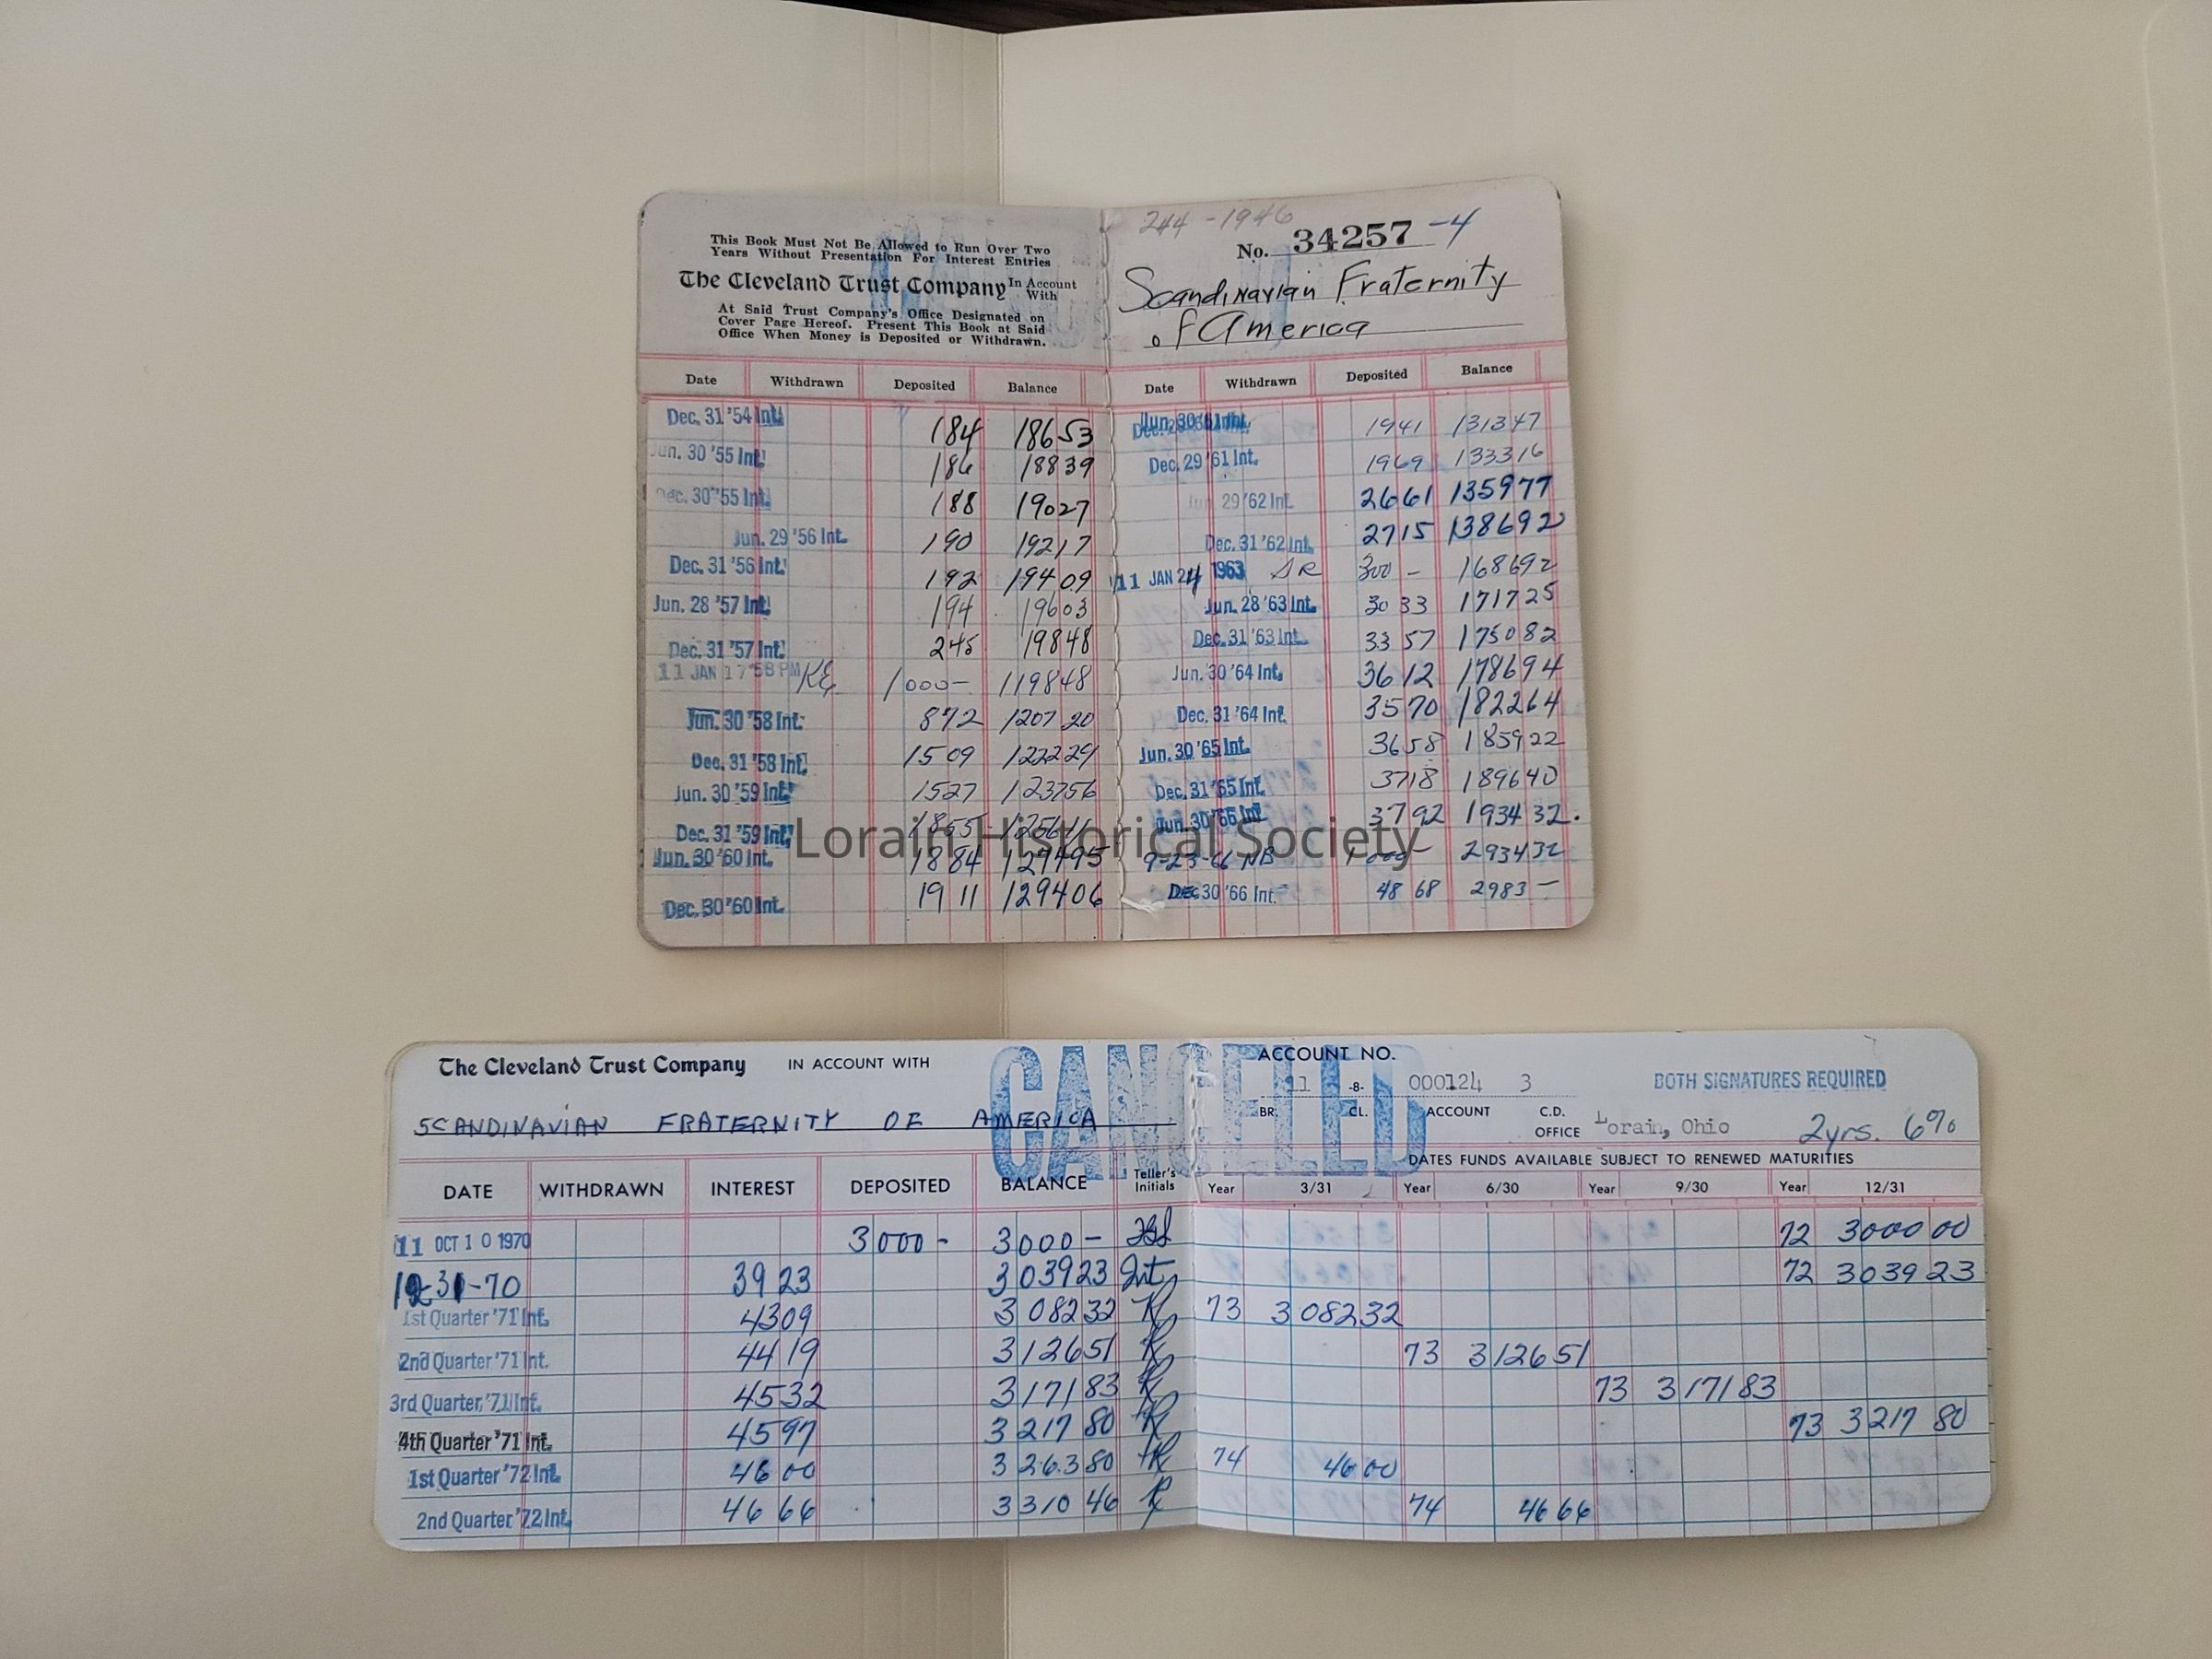 This Book Must Not Be Allowed to Run Over Two
Years Without Presentation For Interest Entries
The Cleveland Trust Company In Account With
At Said Trust Company's Office Designated on
Cover Page Hereof. Present This Book at Said
Office When Money is Deposited or Withdrawn.
Date Withdrawn Deposited Balance
Dec. 31 '54 Int. 184 18653
Jun. 30 '55 Int. 186 18839
Dec. 30 '55 Int. 188 19027
Jun. 29 '56 Int. 190 19217
Dec. 31 '56 Int. 192 19409
Jun. 28 '57 Int. 194 19603
Dec. 31 '57 Int. 245 19848
11 JAN 17 '58 PM 1000- 119848
Jun. 30 '58 Int. 872 120720
Dec. 31 '58 Int. 1509 122229
Jun. 30 '59 Int. 1527 123756
Dec. 31 '59 Int. 1855 125611
Jun. 30 '60 Int. 1884 127495
Dec. 30 '60 Int. 1911 129406
244 - 1946
No. 34257 -4
Scandinavian Fraternity
of America
Date Withdrawn Deposited Balance
Jun. 30 '61 Int. 1941 131347
Dec. 29 '61 Int. 1969 133316
Jun. 29 '62 Int. 2661 135977
Dec. 31 '62 Int. 2715 138692
11 JAN 24 1963 300 - 168692
Jun. 28 '63 Int. 3033 171725
Dec. 31 '63 Int. 3357 175082
Jun. 30 '64 Int. 3612 178694
Dec. 31 '64 Int. 3570 182264
Jun. 30 '65 Int. 3658 185922
Dec. 31 '65 Int. 3718 189640
Jun. 30 '66 Int. 3792 193432.
9-23-66 NB 1000- 293432
Dec. 30 '66 Int. 4868 2983 -
Lorain Historical Society
The Cleveland Trust Company IN ACCOUNT WITH
SCANDINAVIAN FRATERNITY OF AMERICA
CANCELLED
DATE WITHDRAWN INTEREST DEPOSITED BALANCE Teller's Initials
11 OCT 10 1970 3000- 3000-
12-31-70 3923 303923 Int
1st Quarter '71 Int. 4309 308232
2nd Quarter '71 Int. 4419 312651
3rd Quarter '71 Int. 4532 317183
4th Quarter '71 Int. 4597 321780
1st Quarter '72 Int. 4600 326380
2nd Quarter '72 Int. 4666 331046
ACCOUNT NO.
11 -8- 000124 3 BOTH SIGNATURES REQUIRED
BR. CL. ACCOUNT C.D. OFFICE Lorain, Ohio 2yrs. 6%
DATES FUNDS AVAILABLE SUBJECT TO RENEWED MATURITIES
Year 3/31 Year 6/30 Year 9/30 Year 12/31
72 300000
72 303923
73 308232
73 312651
73 317183
73 321780
74 4600
74 4666